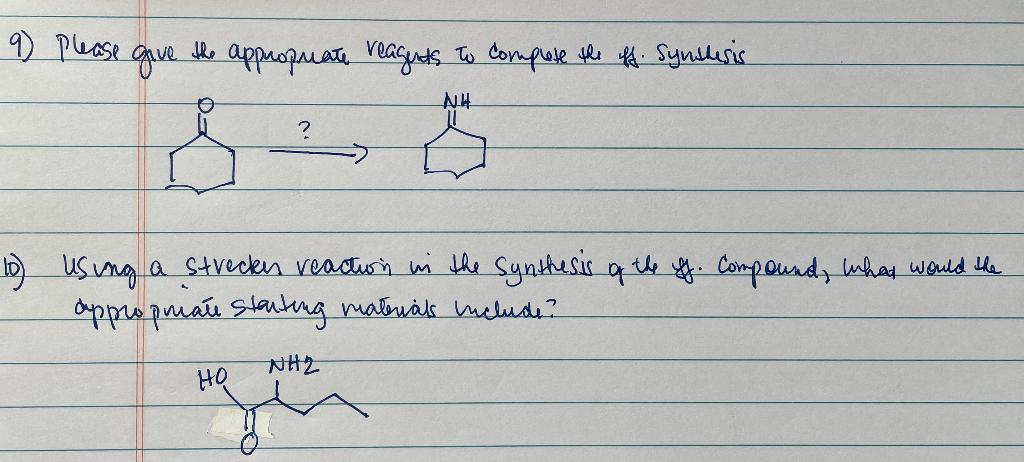 9) Please give the appropriate reagents to complete the ff. synthesis
O
NH
?
10) Using a strecker reaction in the synthesis of the ff. compound, what would the
appropriate starting materials include?
HO NH2
O